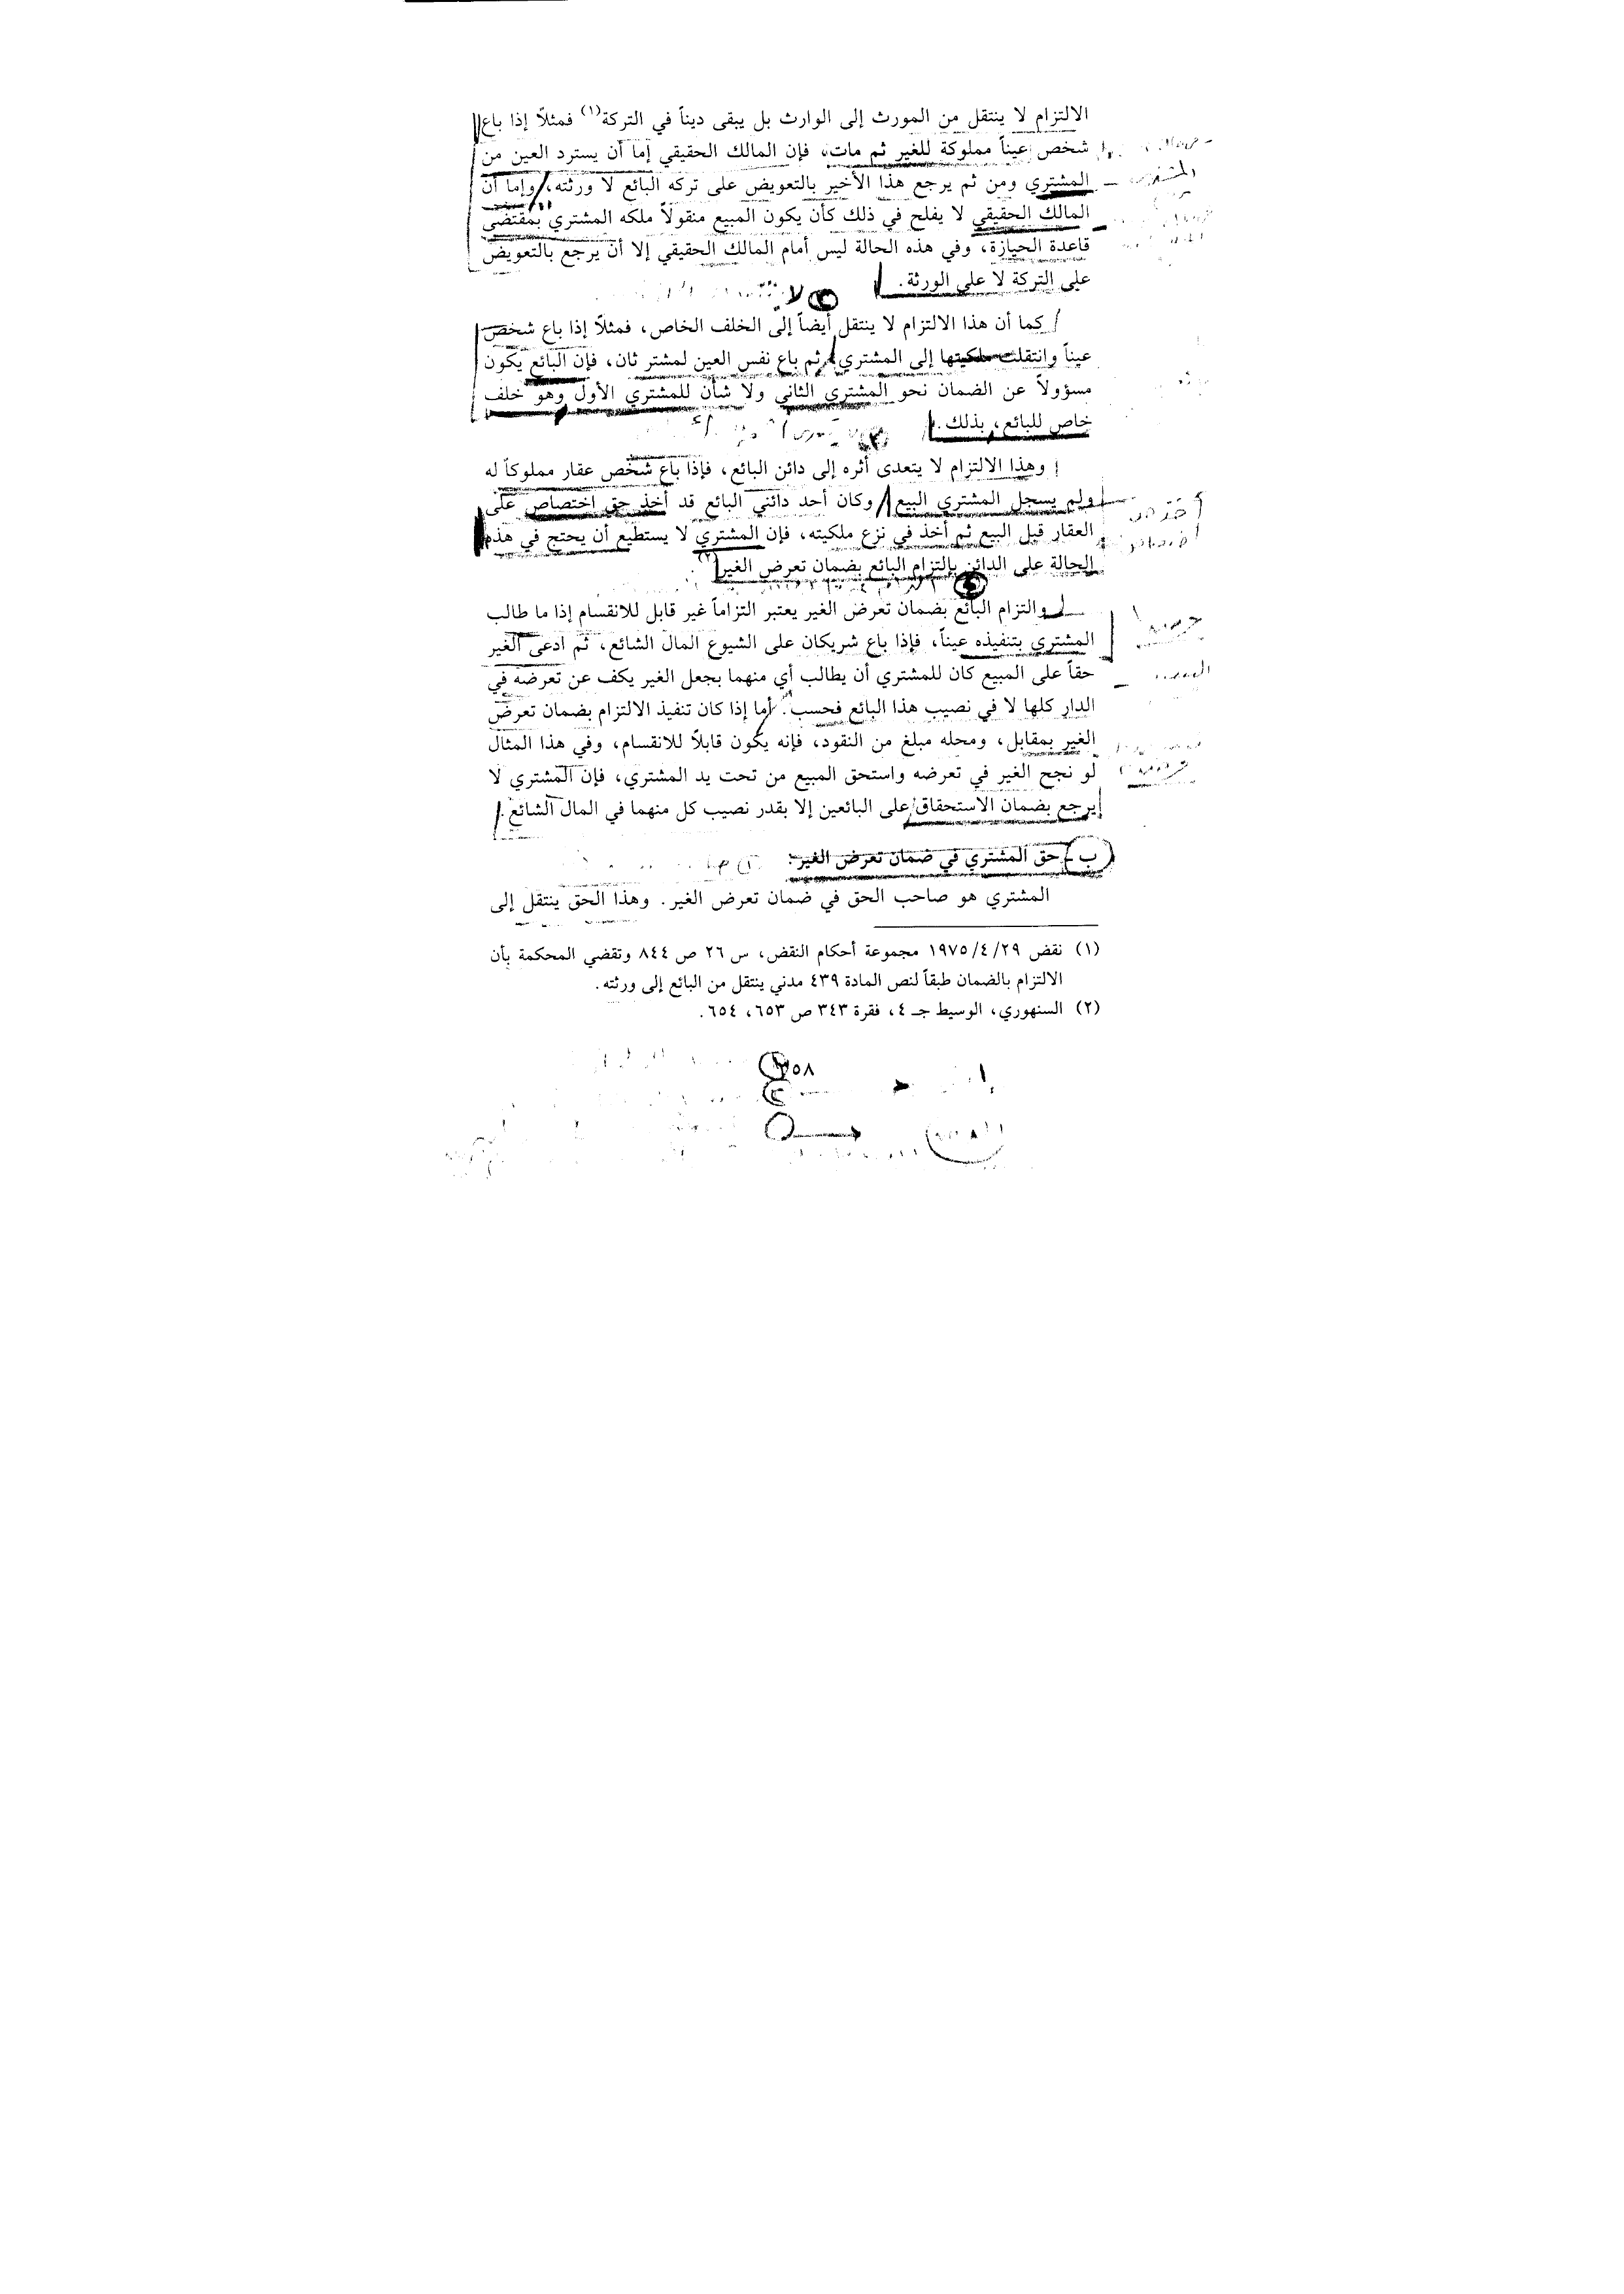 الالتزام لا ينتقل من المورث إلى الوارث بل يبقى ديناً في التركة(١) فمثلاً إذا باع
شخص عيناً مملوكة للغير ثم مات، فإن المالك الحقيقي إما أن يسترد العين من
المشتري ومن ثم يرجع هذا الأخير بالتعويض على تركه البائع لا ورثته، وإما أن
المالك الحقيقي لا يفلح في ذلك كأن يكون المبيع منقولاً ملكه المشتري بمقتضى
قاعدة الحيازة، وفي هذه الحالة ليس أمام المالك الحقيقي إلا أن يرجع بالتعويض
على التركة لا على الورثة.
كما أن هذا الالتزام لا ينتقل أيضاً إلى الخلف الخاص، فمثلاً إذا باع شخص
عيناً وانتقلت ملكيتها إلى المشتري ثم باع نفس العين لمشتر ثان، فإن البائع يكون
مسؤولاً عن الضمان نحو المشتري الثاني ولا شأن للمشتري الأول وهو خلف
خاص للبائع، بذلك.
وهذا الالتزام لا يتعدى أثره إلى دائن البائع، فإذا باع شخص عقار مملوكاً له
ولم يسجل المشتري البيع وكان أحد دائني البائع قد أخذ حق اختصاص على
العقار قبل البيع ثم أخذ في نزع ملكيته، فإن المشتري لا يستطيع أن يحتج في هذه
الحالة على الدائن بالتزام البائع بضمان تعرض الغير(٢).
والتزام البائع بضمان تعرض الغير يعتبر التزاماً غير قابل للانقسام إذا ما طالب
المشتري بتنفيذه عيناً، فإذا باع شريكان على الشيوع المال الشائع، ثم ادعى الغير
حقاً على المبيع كان للمشتري أن يطالب أي منهما بجعل الغير يكف عن تعرضه في
الدار كلها لا في نصيب هذا البائع فحسب. أما إذا كان تنفيذ الالتزام بضمان تعرض
الغير بمقابل، ومحله مبلغ من النقود، فإنه يكون قابلاً للانقسام، وفي هذا المثال
لو نجح الغير في تعرضه واستحق المبيع من تحت يد المشتري، فإن المشتري لا
يرجع بضمان الاستحقاق على البائعين إلا بقدر نصيب كل منهما في المال الشائع.
ب - حق المشتري في ضمان تعرض الغير:
المشتري هو صاحب الحق في ضمان تعرض الغير. وهذا الحق ينتقل إلى
(١) نقض ١٩٧٥/٤/٢٩ مجموعة أحكام النقض، س ٢٦ ص ٨٤٤ وتقضي المحكمة بأن
الالتزام بالضمان طبقاً لنص المادة ٤٣٩ مدني ينتقل من البائع إلى ورثته.
(٢) السنهوري، الوسيط جـ ٤، فقرة ٣٤٣ ص ٦٥٣، ٦٥٤.